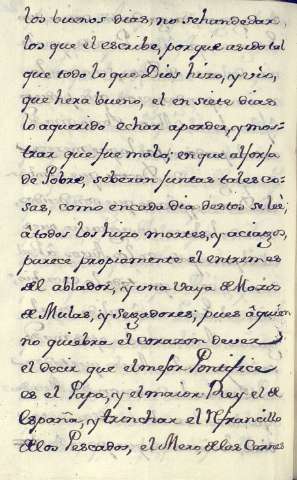 los buenos dias, no se handedar
los que el escribe, porque asido tal
que todo lo que Dios hizo, y vio,
que hera bueno, el en siete dias
lo aquerido echar aperder, y mos-
trar que fue malo; en que alforja
de Pobre, se beran juntas tales co-
sas, como encada dia destos se leè;
à todos los hizo martes, y aciagos,
parece propiamente el entremes
del ablador, y una vaya de Mozos
de Mulas, y Segadores; pues à quien
no quiebra el corazon de ver
el decir que el mejor Pontifice
es el Papa, y el maior Rey el de
España, y trinchar el
de los Pescados, el Mero, de las Carnes